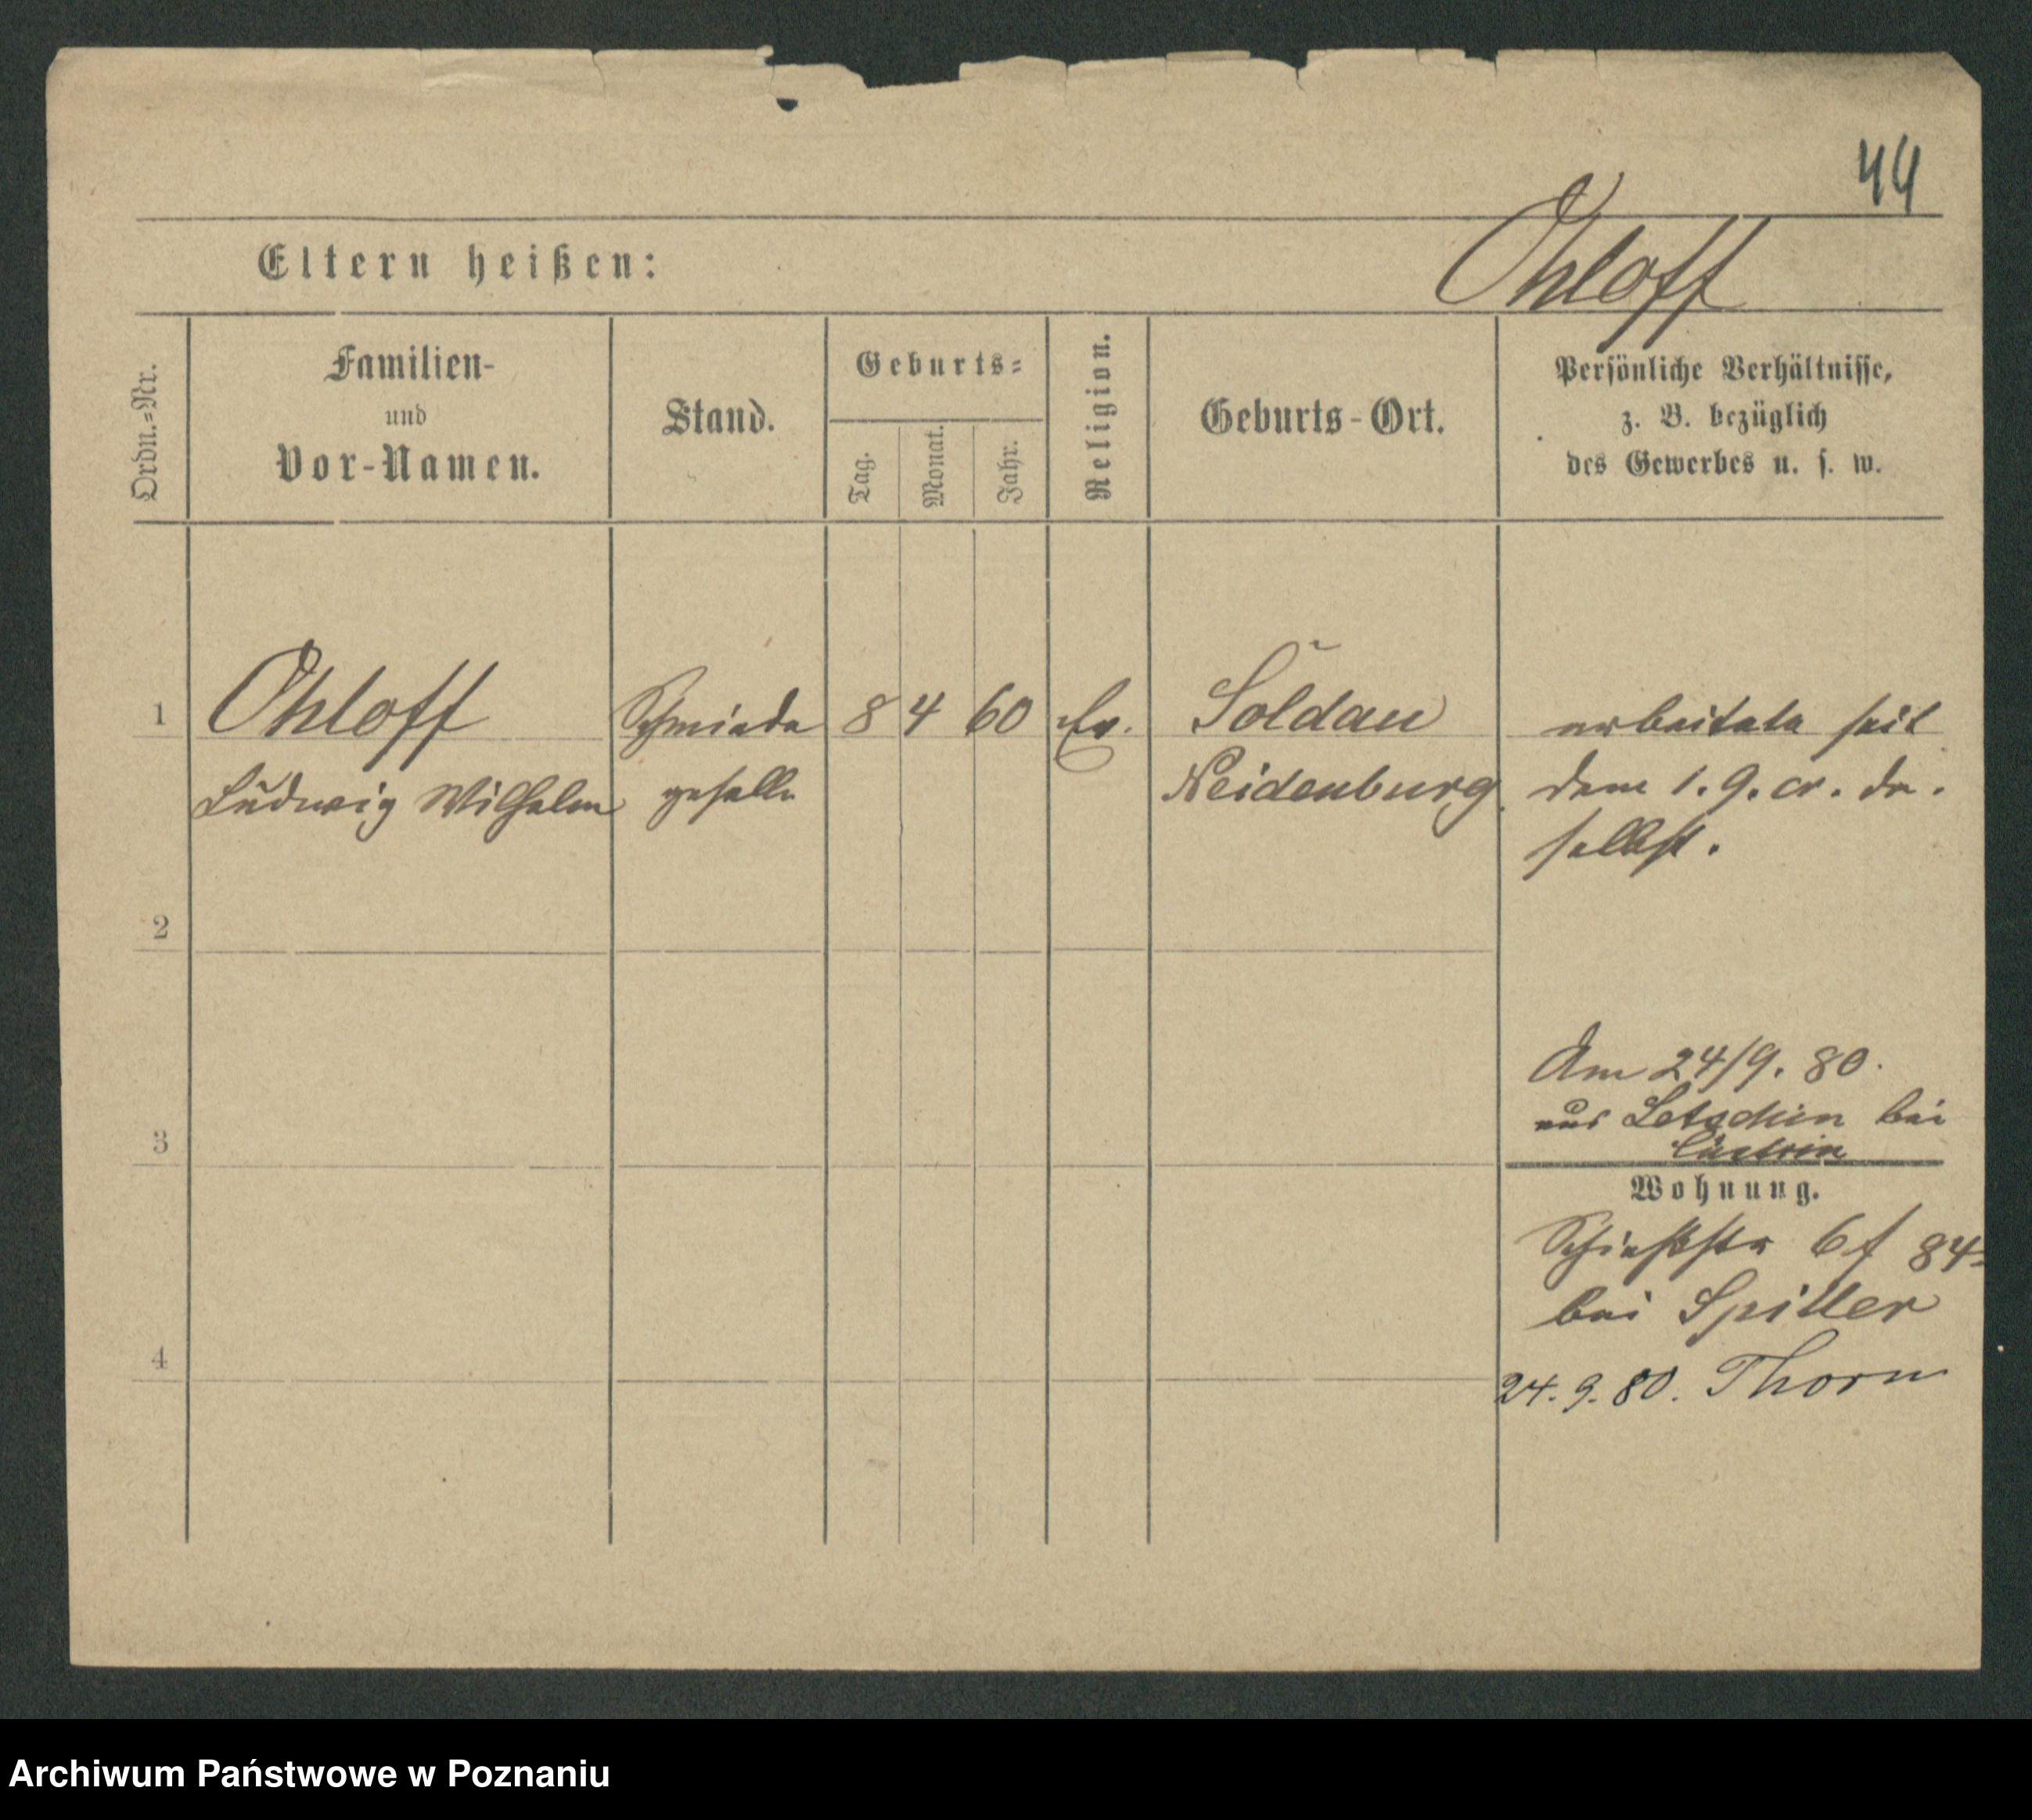 44
Ohloff
Eltern heißen:
Ordn.=Nr.
Familien-
und
Vor-Namen.
Stand.
Geburts=
Tag.
Monat.
Jahr.
Religion.
Geburts-Ort.
Persönliche Verhältnisse,
z. B. bezüglich
des Gewerbes u. s. w.
1
Ohloff
Ludwig Wilhelm
Schmiede
geselle
8
4
60
Ev.
Soldau
Neidenburg
arbeitete seit
dem 1. 9. cr. da.
selbst.
2
3
Am 24/9. 80.
aus Letschin bei
Cüstrin
Wohnung.
6 f 84
bei Spiller
4
24. 9. 80. Thorn
Archiwum Państwowe w Poznaniu